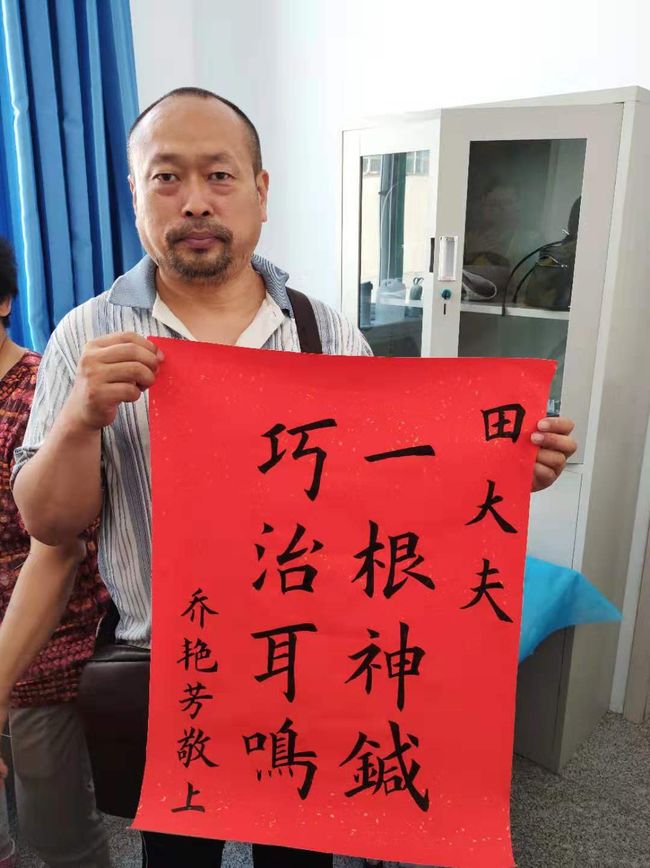 田大夫
一根神鍼
巧治耳鳴
乔艳芳敬上